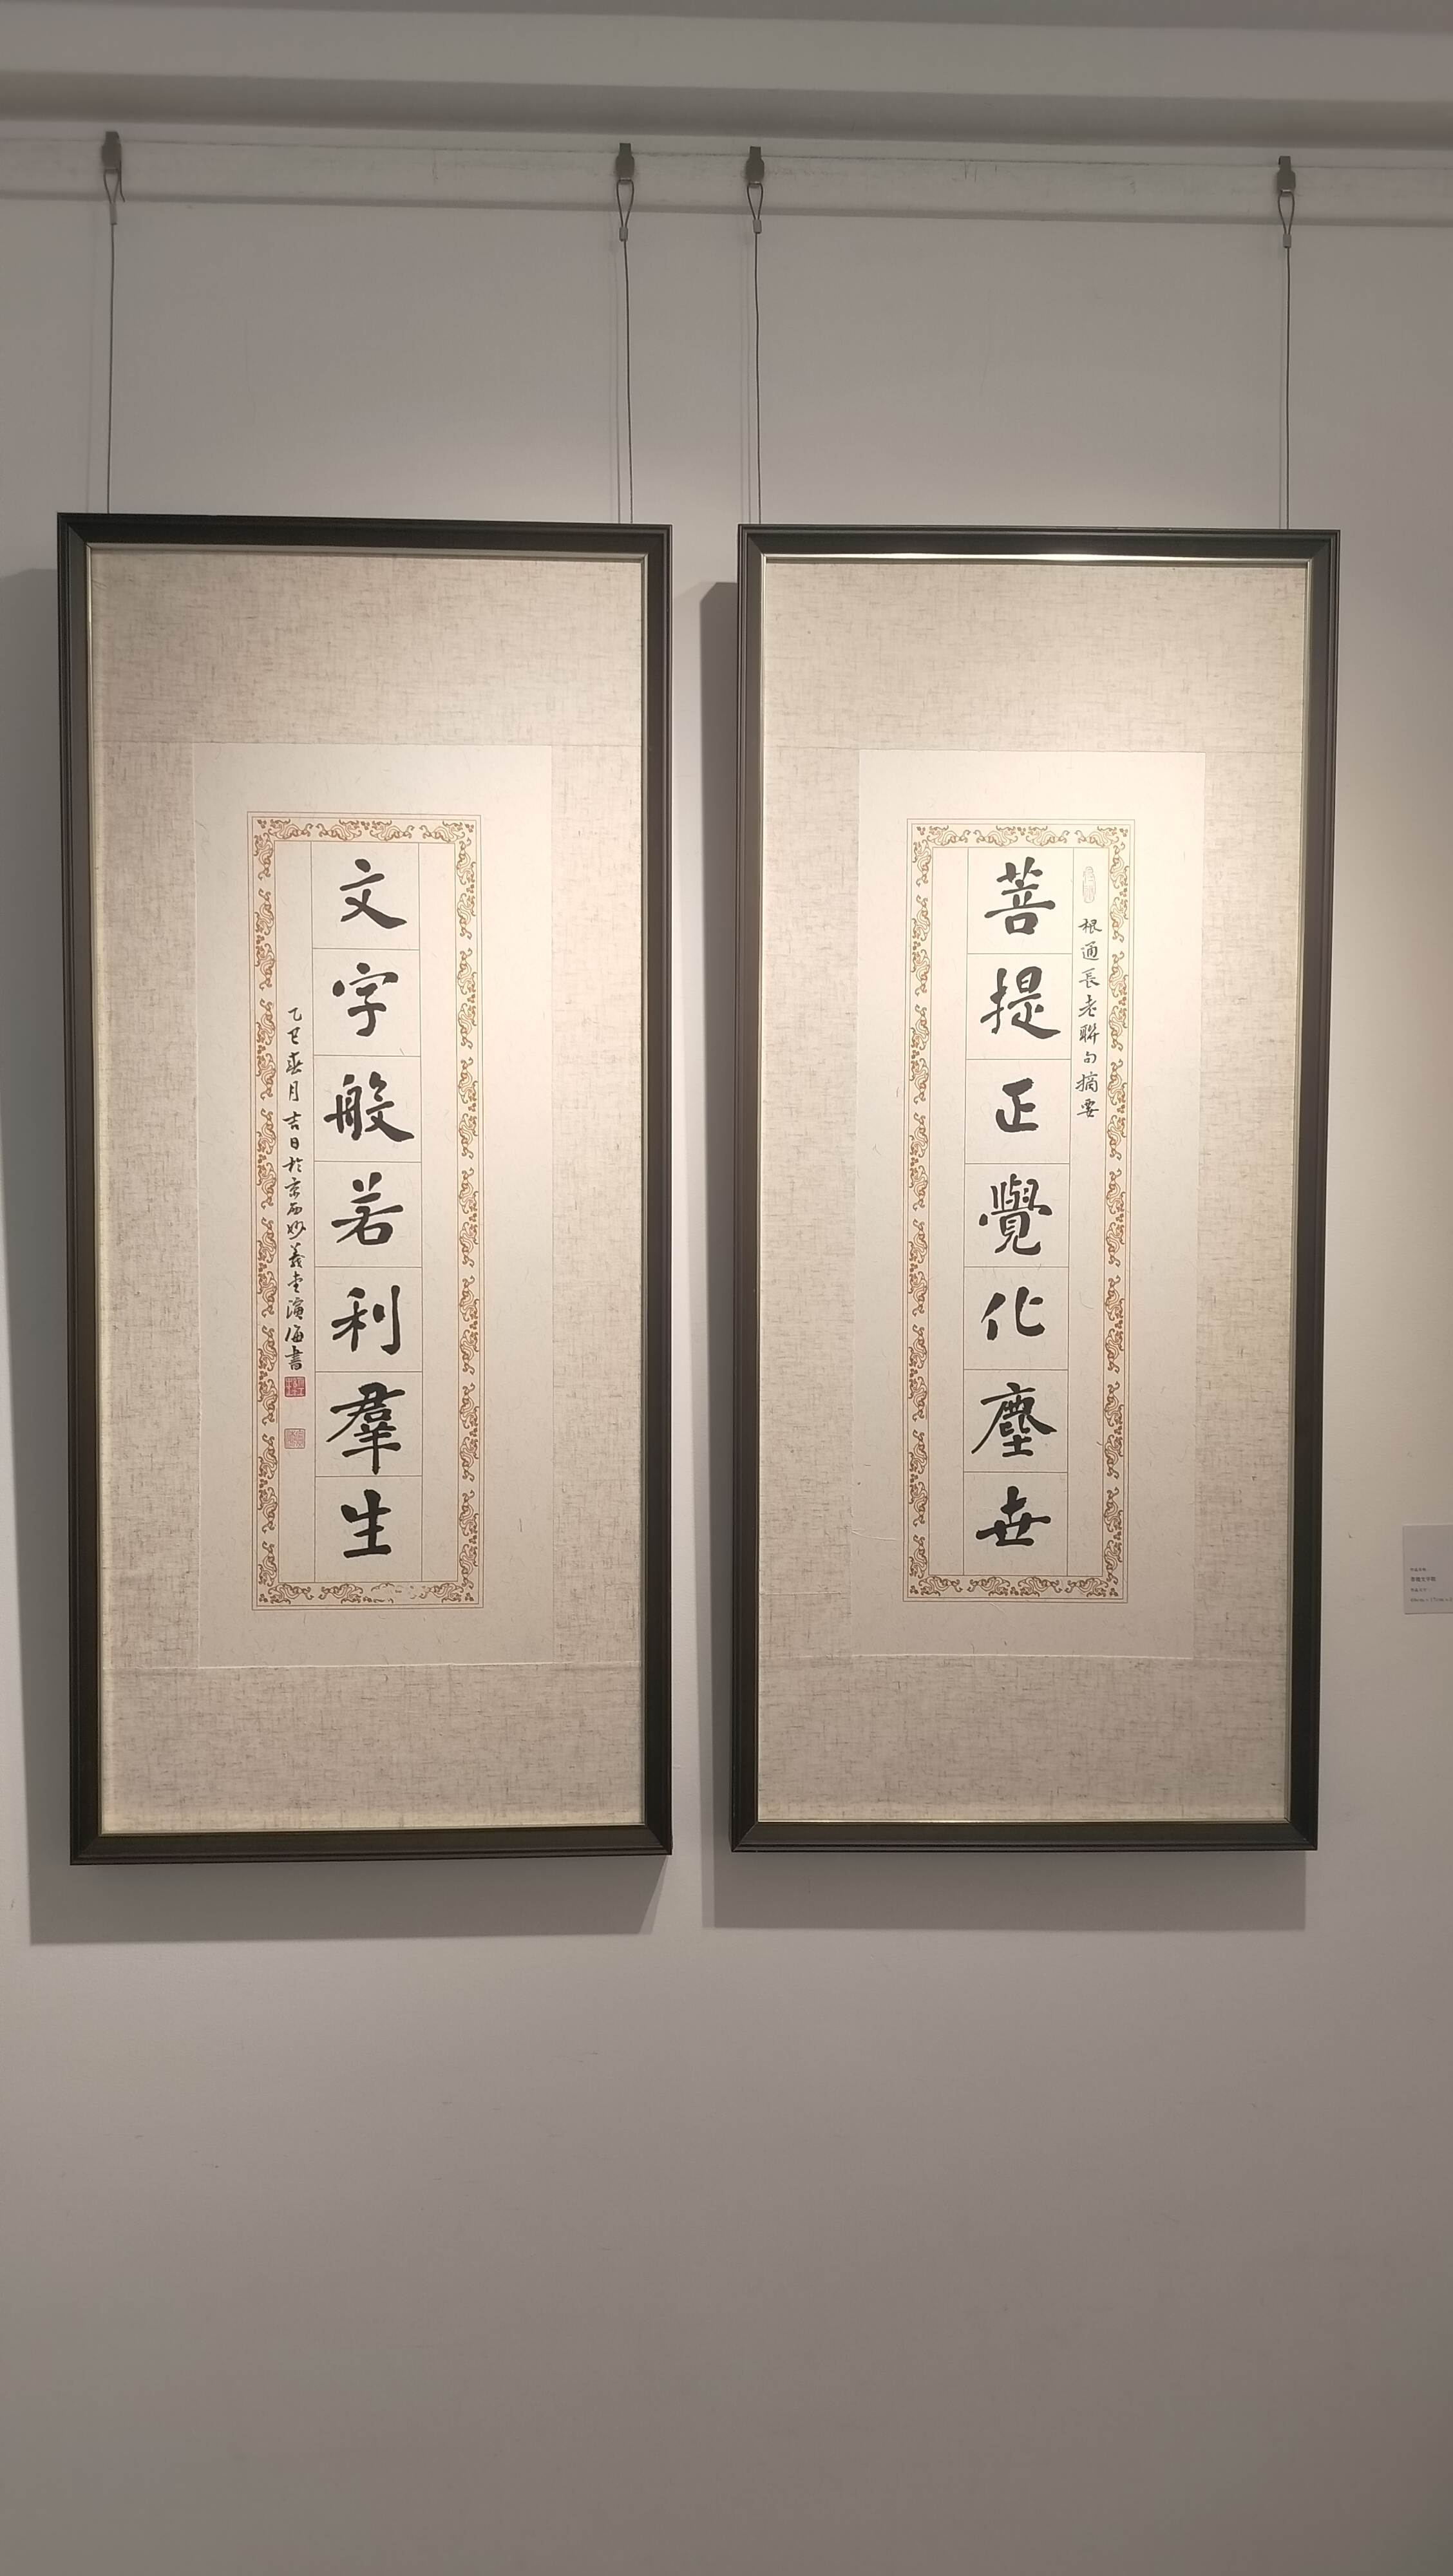 根通長老聯句摘要
菩提正覺化塵世
文字般若利羣生
乙巳春月吉日於京西妙義堂演海書